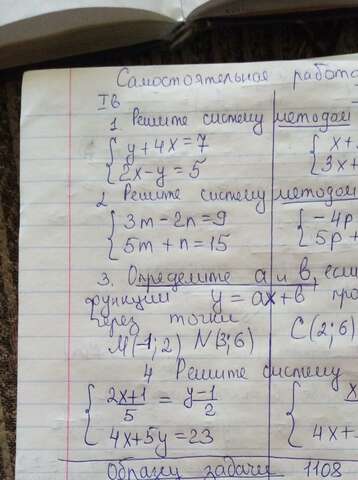 Самостоятельная работа
I в
1 Решите систему методом
y+4x=7
2x-y=5
x+
3x+
2 Решите систему методом
3m-2n=9
5m+n=15
-4p
5p+
3. Определите a и b, если
функции y=ax+b про
через точки
M(-1;2) N(3;6) C(2;6)
4 Решите систему
(2x+1)/5 = (y-1)/2
4x+5y=23
x
4x+
Образец задачи 1108